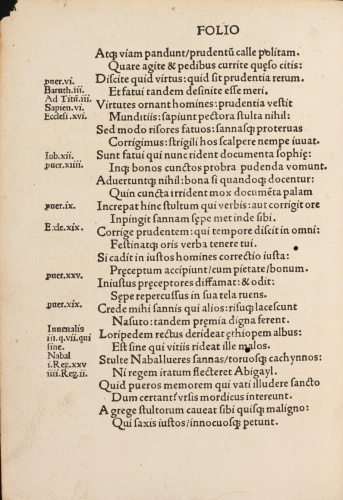 FOLIO
Atqꝫ viam pandunt/prudentū calle politam.
Quare agite & pedibus currite quęso citis:
puer.vi.
Discite quid virtus: quid sit prudentia rerum.
Baruth.iii.
Et fatui tandem definite esse meri.
Ad Titū.iii.
Virtutes ornant homines: prudentia vestit
Sapien.vi.
Munditiis: sapiunt pectora stulta nihil:
Ecclesi.xvi.
Sed modo risores fatuos: sannasqꝫ proteruas
Corrigimus: strigili hos scalpere nempe iuuat.
Iob.xii.
Sunt fatui qui nunc rident documenta sophię:
puer.xiiii.
Inqꝫ bonos cunctos probra pudenda vomunt.
Aduertuntqꝫ nihil: bona si quandoqꝫ docentur:
Quin cuncta irrident mox documēta palam
puer.ix.
Increpat hinc stultum qui verbis: aut corrigit ore
Inpingit sannam sępe met inde sibi.
Ecle.xix.
Corrige prudentem: qui tempore discit in omni:
Festinatqꝫ oris verba tenere tui.
Si cadit in iustos homines correctio iusta:
Pręceptum accipiunt/cum pietate/bonum.
puer.xxv.
Iniustus pręceptores diffamat: & odit:
Sepe repercussus in sua tela ruens.
puer.xix.
Crede mihi sannis qui alios: risuqꝫ lacescunt
Nasuto: tandem pręmia digna ferent.
Iuuenalis
Loripedem rectus derideat ęthiopem albus:
in.q.vii.qui
Est sine qui vitiis rideat ille malos.
sine.
Nabal
Stulte Naballueres sannas/toruosqꝫ cachynnos:
i.Reg.xxv
Ni regem iratum flecteret Abigayl.
iiii.Reg.ii.
Quid pueros memorem qui vati illudere sancto
Dum certant vrsis mordicus intereunt.
A grege stultorum caueat sibi quisqꝫ maligno:
Qui saxis iustos/innocuosqꝫ petunt.